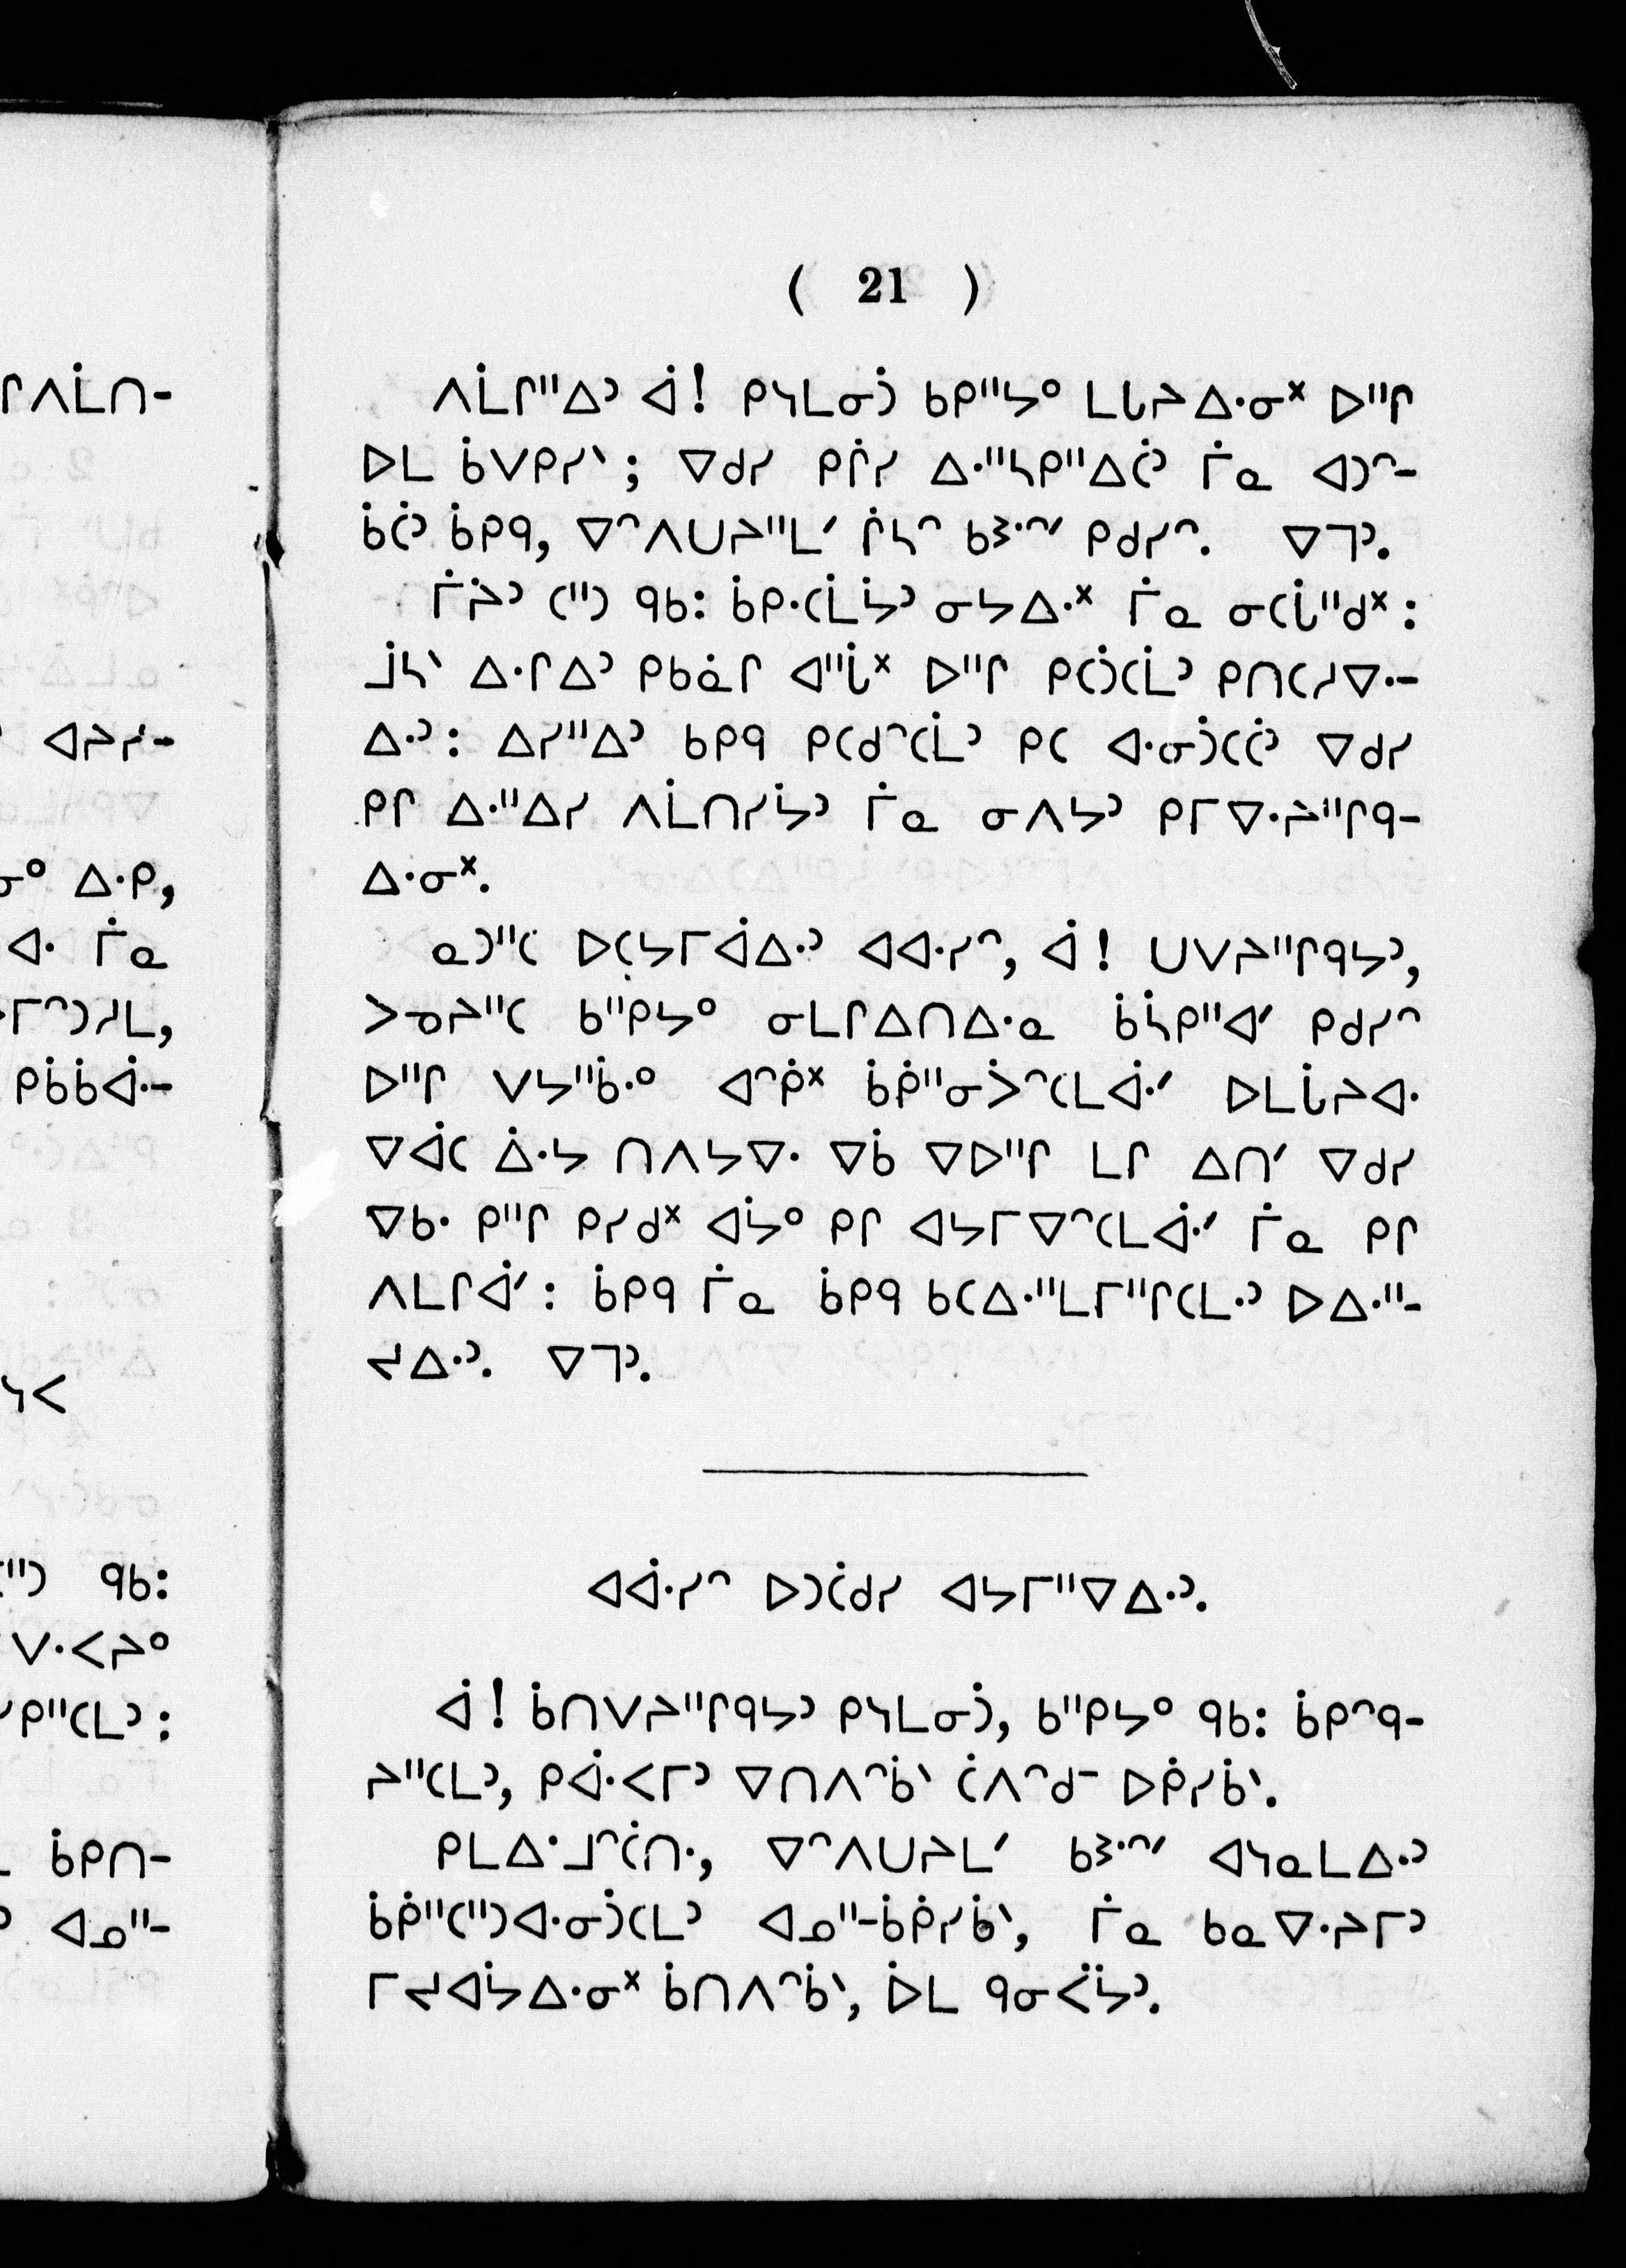 ( 21 )
ᐱᒫᒋᐦᐃᐣ ᐋ! ᑭᓴᒪᓂᑑ ᑲᑭᐦᔭᐤ ᒪᒐᔨᐃᐧᓂᕽ ᐅᐦᒋ
ᐅᒪ ᑳᐯᑭᓯᐠ; ᐁᑯᓯ ᑭᒌᓯ ᐃᐧᐦᓴᑭᐦᐃᑖᐣ ᒦᓇ ᐊᑐᐢ-
ᑳᑖᐣ ᑳᑭᑫ, ᐁᐢᐱᑌᔨᐦᒪᐟ ᒌᓴᐢ ᑲᕒᐧᐢᐟ ᑭᑯᓯᐢ. ᐁᒣᐣ.
ᒦᔩᐣ ᑕᐦᑐ ᑫᑲ: ᑳᑭᐧᑕᒫᔮᐣ ᓂᔭᐃᐧᕽ ᒦᓇ ᓂᑕᒑᐦᑯᕽ:
ᒨᓴᐠ ᐃᐧᒋᐃᐣ ᑭᑲᓈᒋ ᐊᐦᒑᕽ ᐅᐦᒋ ᑭᑖᑐᑕᒫᐣ ᑭᑎᑕᓱᐁᐧ-
ᐃᐧᐣ: ᐃᓯᐦᐃᐣ ᑲᑭᑫ ᑭᑕᑯᐢᑕᒫᐣ ᑭᑕ ᐊᐧᓂᑑᑕᑖᐣ ᐁᑯᓯ
ᑭᒋ ᐃᐧᐦᐃᓯ ᐱᒫᑎᓯᔮᐣ ᒦᓇ ᓂᐱᔭᐣ ᑭᒥᐁᐧᔨᐦᒋᑫ-
ᐃᐧᓂᕽ.
ᓇᑐᐦᑕ ᐅᑕᔭᒥᐋᐃᐧᐣ ᐊᐊᐧᓯᐢ, ᐋ! ᑌᐯᔨᐦᒋᑫᔭᐣ,
ᐳᓀᔨᐦᑕ ᑲᐦᑭᔭᐤ ᓂᒪᒋᐃᑎᐃᐧᓇ ᑳᓵᑭᐦᐊᐟ ᑭᑯᓯᐢ
ᐅᐦᒋ ᐯᔭᐦᑳᐧᐤ ᐊᐢᑮᕽ ᑳᑮᐦᓂᐴᐢᑕᒪᐋᐧᐟ ᐅᒪᒑᔨᐊᐧ
ᐁᐋᑕ ᐄᐧᔭ ᑎᐱᔭᐁᐧ ᐁᑳ ᐁᐅᐦᒋ ᒪᒋ ᐃᑎᐟ ᐁᑯᓯ
ᐁᑲᐧ ᑭᐦᒋ ᑭᓯᑯᕽ ᐊᔮᐤ ᑭᒋ ᐊᔭᒥᐁᐢᑕᒪᐋᐧᐟ ᒦᓇ ᑭᒋ
ᐱᒪᒋᐋᐟ: ᑳᑭᑫ ᒦᓇ ᑳᑭᑫ ᑲᑕᐃᐧᐦᒪᒥᐦᒋᑕᒪᐧᐣ ᐅᐃᐧᐦ-
ᔪᐃᐧᐣ. ᐁᒣᐣ.
ᐊᐋᐧᓯᐢ ᐅᑐᑖᑯᓯ ᐊᔭᒥᐦᐁᐃᐧᐣ.
ᐋ! ᑳᑎᐯᔨᐦᒋᑫᔭᐣ ᑭᓴᒪᓂᑑ, ᑲᐦᑭᔭᐤ ᑫᑲ: ᑳᑭᐢᑫ-
ᔨᐦᑕᒪᐣ, ᑭᐋᐧᐸᒥᐣ ᐁᑎᐱᐢᑳᐠ ᑖᐱᐢᑯᐨ ᐅᑮᓯᑳᐠ.
ᑭᒪᐃᐧᒧᐢᑖᑎᐧ, ᐁᐢᐱᑌᔨᒪᐟ ᑲᕒᐧᐢᐟ ᐊᓴᓇᒪᐃᐧᐣ
ᑳᑮᐦᑕᐦᑐᐊᐧᓂᑑᑕᒪᐣ ᐊᓄᐦ-ᑳᑮᓯᑳᐠ, ᒦᓇ ᑲᓇᐁᐧᔨᒥᐣ
ᒥᔪᐊᔮᐃᐧᓂᕽ ᑳᑎᐱᐢᑳᐠ, ᐆᒪ ᑫᓂᐹᔮᐣ.